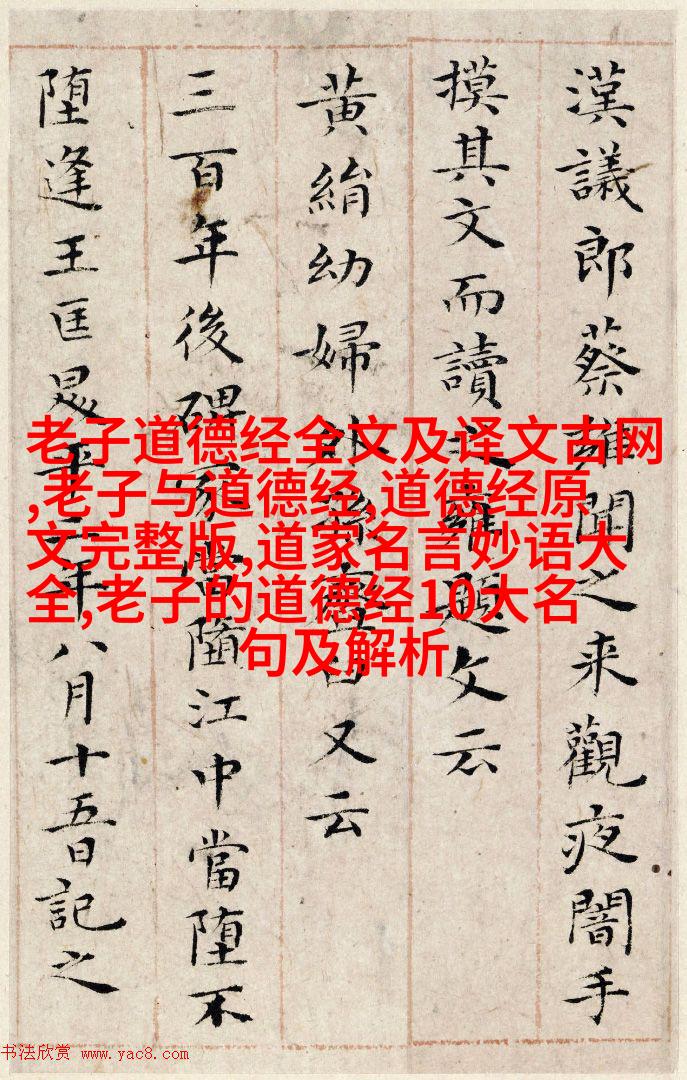 漢議郎蔡雍聞之来觀夜闇手
摸其文而讀之雍題文云
黄絹幼婦外孫臼又云
三百年後碑冢當墮江中當堕不
堕逢王匡昇平二年八月十五日記之
老子道德经全文及译文古网
,老子与道德经,道德经原
文完整版,道家名言妙语大
全,老子的道德经10大名
句及解析
书法欣赏 www.yac8.com